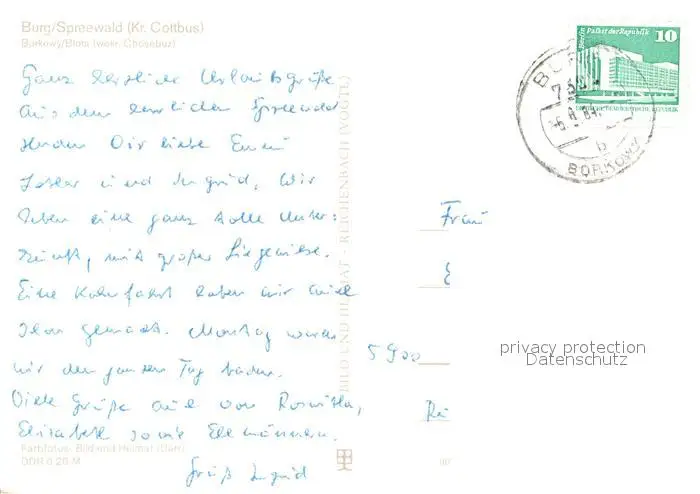 Burg/Spreewald (Kr. Cottbus)
Borkowy/Błota (wokr. Chośebuz)
Ganz herzliche Urlaubsgrüße
aus dem herrlichen Spreewald
senden Dir liebe
und Ingrid. Wir
haben eine ganz tolle Unter-
kunft, mit großer Liegewiese.
Eine Kahnfahrt haben wir auch
schon gemacht. Montag waren
wir den ganzen Tag baden.
Viele Grüße auch von Roswitha,
Elisabeth sowie Ehemännern.
Gruß Ingrid
Farbfotos: Bild und Heimat (Darr)
DDR 0,20 M
BILD UND HEIMAT - REICHENBACH (VOGTL)
Berlin, Palast der Republik 10
DEUTSCHE DEMOKRATISCHE REPUBLIK
BORKOWY
b
Frau
E
5900
privacy protection
Datenschutz